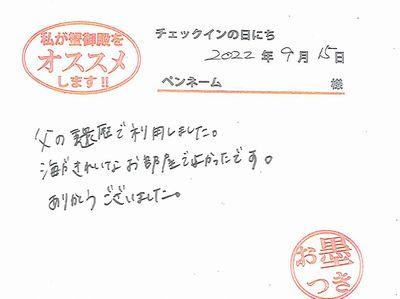 私が蟹御殿を
オススメ
します!!
チェックインの日にち
2022年9月15日
ペンネーム 様
父の還暦で利用しました。
海がきれいなお部屋でよかったです。
ありがとうございました。
お墨
つき